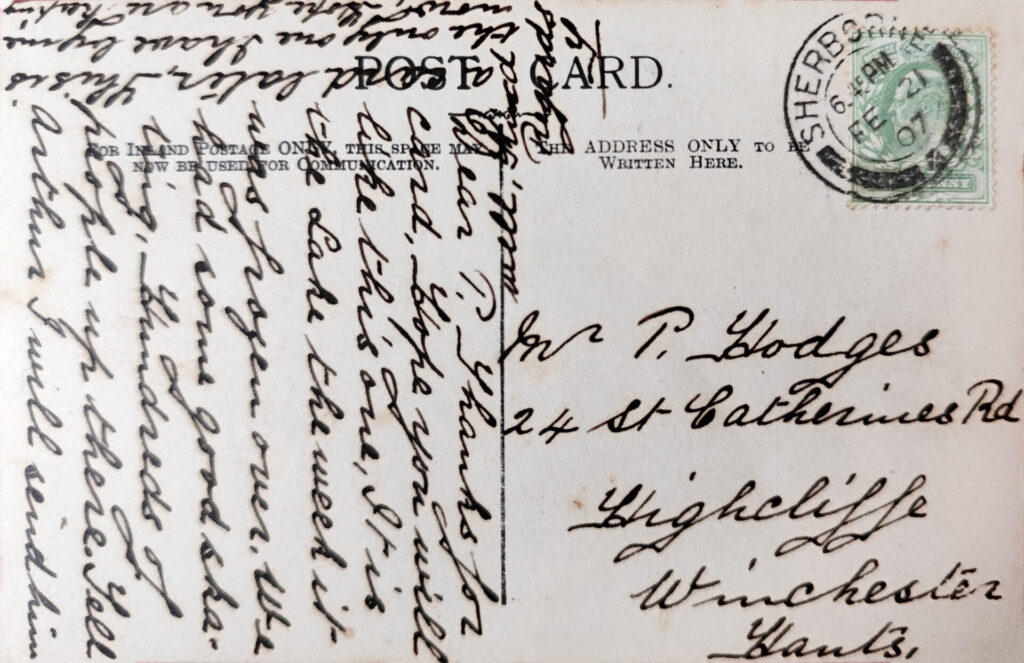 POST CARD.
FOR INLAND POSTAGE ONLY, THIS SPACE MAY
NOW BE USED FOR COMMUNICATION.
THE ADDRESS ONLY TO BE
WRITTEN HERE.
SHERBORNE
6.45PM
FE 21
07
Dear P. Thanks for
card, Hope you will
like this one, It is
the Lake the week it
was frozen over. We
had some good ska-
ting, Hundreds of
people up there. Tell
Arthur I will send him
a card later, This is
the only one I have by me
now, Hope you are
well,
Yours
Mr P. Hodges
24 St Catherines Rd
Highcliffe
Winchester
Hants.